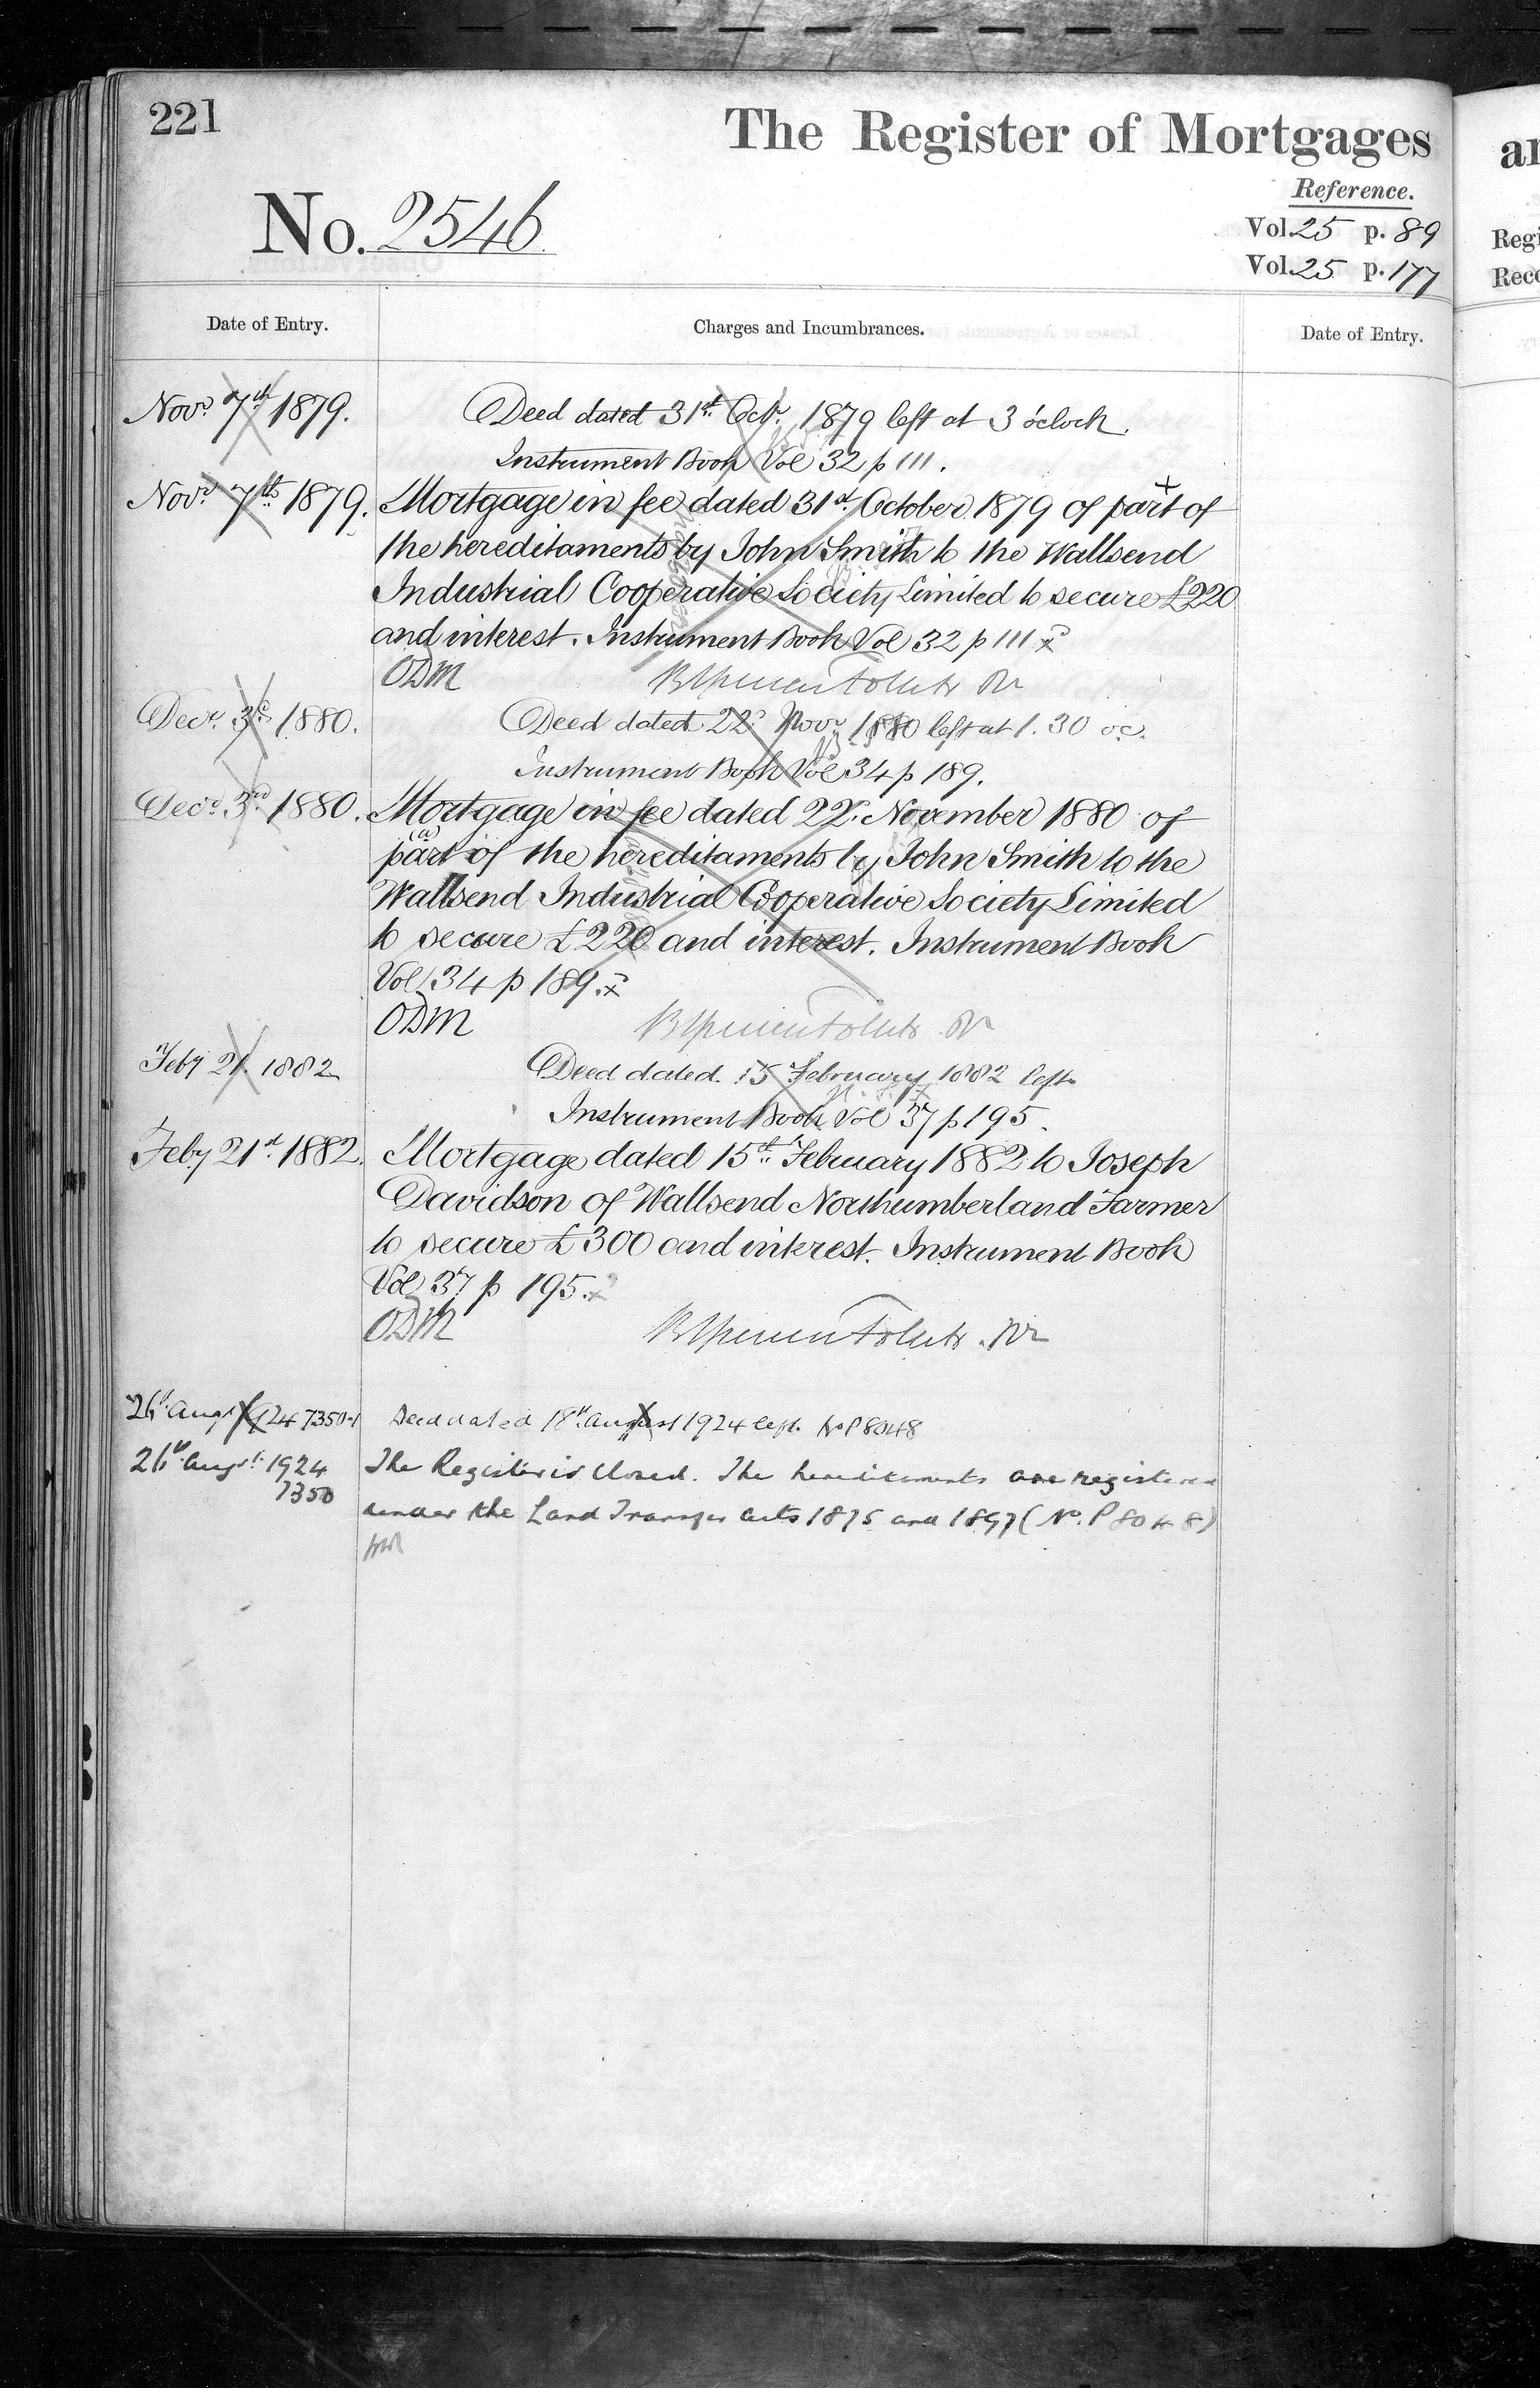 221
The Register of Mortgages
Reference.
No. 2546
Vol. 25 p. 89
Vol. 25 p. 177
Date of Entry.
Charges and Incumbrances.
Date of Entry.
Novr. 7th 1879.
Deed dated 31st Octr. 1879 left at 3 o'clock.
Instrument Book Vol 32 p 111.
Novr. 7th 1879.
Mortgage in fee dated 31st October 1879 of part of
the hereditaments by John Smith to the Wallsend
Industrial Cooperative Society Limited to secure £220
and interest. Instrument Book Vol 32 p 111
ODM
Decr. 3rd 1880.
Deed dated 22d Novr 1880 left at 1.30 oc.
Instrument Book Vol 34 p 189.
Decr. 3rd 1880.
Mortgage in fee dated 22d November 1880 of
(a)
part of the hereditaments by John Smith to the
Wallsend Industrial Cooperative Society Limited
to secure £220 and interest. Instrument Book
Vol 34 p 189.
ODM
Feby 21. 1882
Deed dated 15 February 1882 left
Instrument Book Vol 37 p 195.
Feby 21st 1882.
Mortgage dated 15th February 1882 to Joseph
Davidson of Wallsend Northumberland Farmer
to secure £300 and interest. Instrument Book
Vol 37 p 195.
ODM
26th Augt 1924 7350
Deed dated 18th August 1924 left No P8048
26th Augst. 1924
7350
The Register is closed. The hereditaments are registered
under the Land Transfer Acts 1875 and 1897 (No. P 8048)
an
Regi
Reco